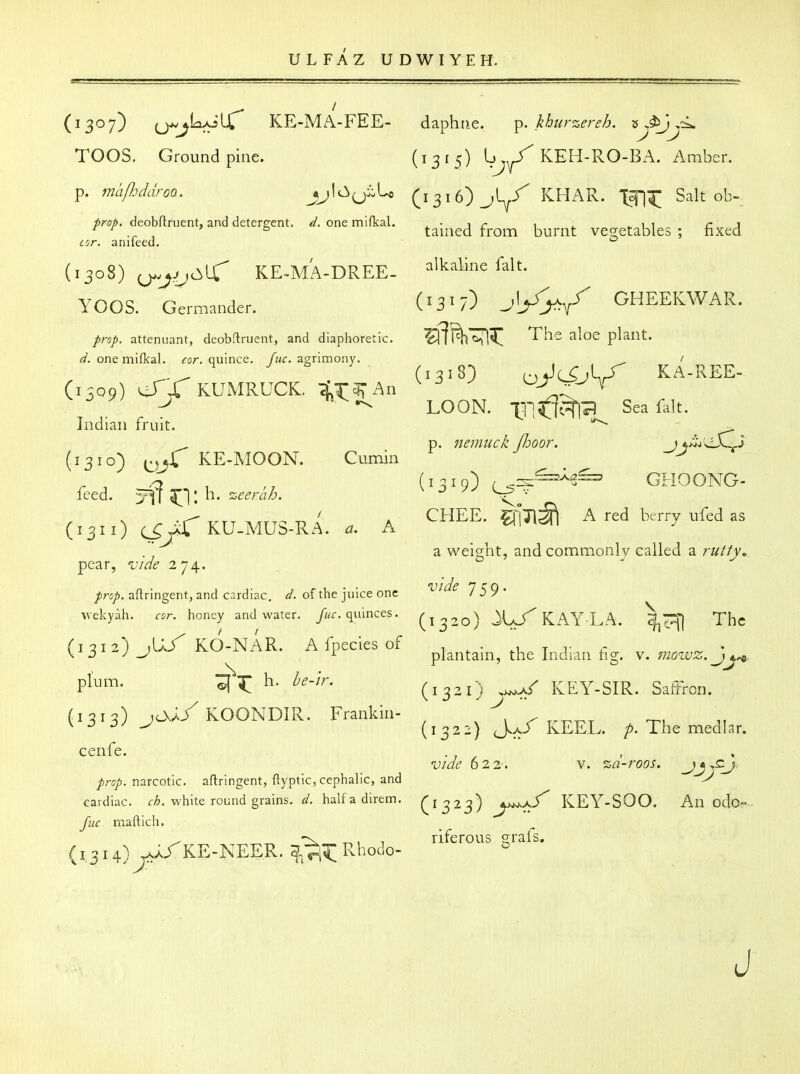 ULFÁZ UDWIYEH.
(1307) كمافيطوس KE-MÁ-FEE-
TOOS. Ground pine.
p. máſhdároo. ماشندارو
prop. deobſtruent, and detergent. d. one miſkal.
cor. aniſeed.
(1308) كمادريوس KE-MÁ-DREE-
YOOS. Germander.
prop. attenuant, deobſtruent, and diaphoretic.
d. one miſkal. cor. quince. ſuc. agrimony.
(1309) كمرك KUMRUCK. An
Indian fruit.
(1310) كمون KE-MOON. Cumin
ſeed. जीरा: h. zeeráh.
(1311) كمثري KU-MUS-RÁ. a. A
pear, vide 274.
prop. aſtringent, and cardiac. d. of the juice one
wekyáh. cor. honey and water. ſuc. quinces.
(1312) كنار KÓ-NÁR. A ſpecies of
plum. h. be-ir.
(1313) كندر KOONDIR. Frankin-
cenſe.
prop. narcotic. aſtringent, ſtyptic, cephalic, and
cardiac. ch. white round grains. d. half a direm.
ſuc maſtich.
(1314) كنير KE-NEER. कनेर Rhodo-
daphne. p. khurzereh. خرزهره
(1315) كهربا KEH-RO-BA. Amber.
(1316) كهار KHAR. खार Salt ob-
tained from burnt vegetables ; fixed
alkaline ſalt.
(1317) گهيكوار GHEEKWAR.
घीकवार The aloe plant.
(1318) كهاري لون KÁ-REE-
LOON. खारीलोन Sea ſalt.
p. nemuck ſhoor. نمك شور
(1319) گهونگچي GHOONG-
CHEE. A red berry uſed as
a weight, and commonly called a rutty.
vide 759.
(1320) كيلا KAY-LA. केला The
plantain, the Indian fig. v. mowz. موز
(1321) كيسر KEY-SIR. Saffron.
(1322) كيل KEEL. p. The medlar.
vide 622. v. zá-roos. زعرور
(1323) كيسو KEY-SOO. An odo-
riferous graſs.
J